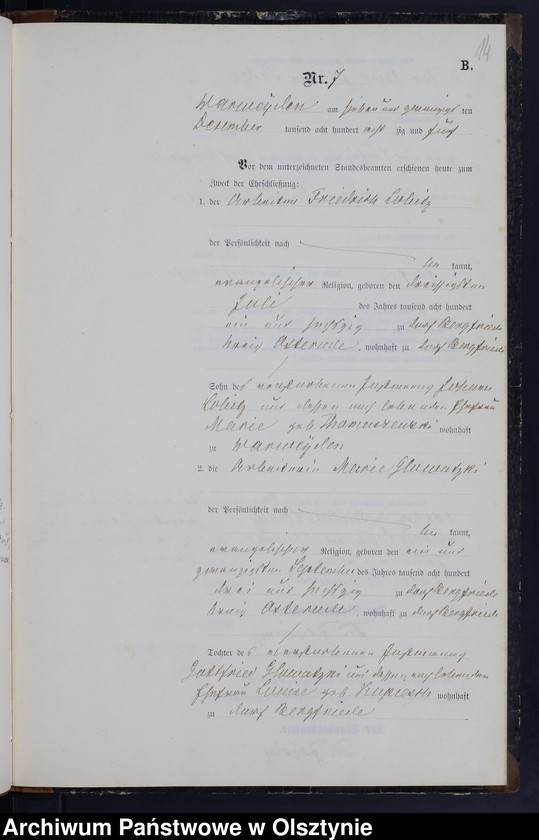 14
B.
Nr. 7
Warweyden am sieben und zwanzigsten
Dezember tausend acht hundert acht zig und fünf
Vor dem unterzeichneten Standesbeamten erschienen heute zum
Zweck der Eheschließung:
1. der Arbeiter Friedrich
der Persönlichkeit nach
be kannt,
evangelischer Religion, geboren den dreißigsten
Juli des Jahres tausend acht hundert
ein und sechszig zu Dorf Bergfriede
Kreis Osterode, wohnhaft zu Dorf Bergfriede
Sohn des verstorbenen Instmann Johann
und dessen noch lebenden Ehefrau
Marie geb. wohnhaft
zu Warweyden
2. die Arbeiterin Marie Glowatzki
der Persönlichkeit nach
be kannt,
evangelischer Religion, geboren den ein und
zwanzigsten September des Jahres tausend acht hundert
drei und sechszig zu Dorf Bergfriede
Kreis Osterode, wohnhaft zu Dorf Bergfriede
Tochter des verstorbenen Instmann
Gottfried Glowatzki und dessen noch lebenden
Ehefrau Louise geb. wohnhaft
zu Dorf Bergfriede
Archiwum Państwowe w Olsztynie